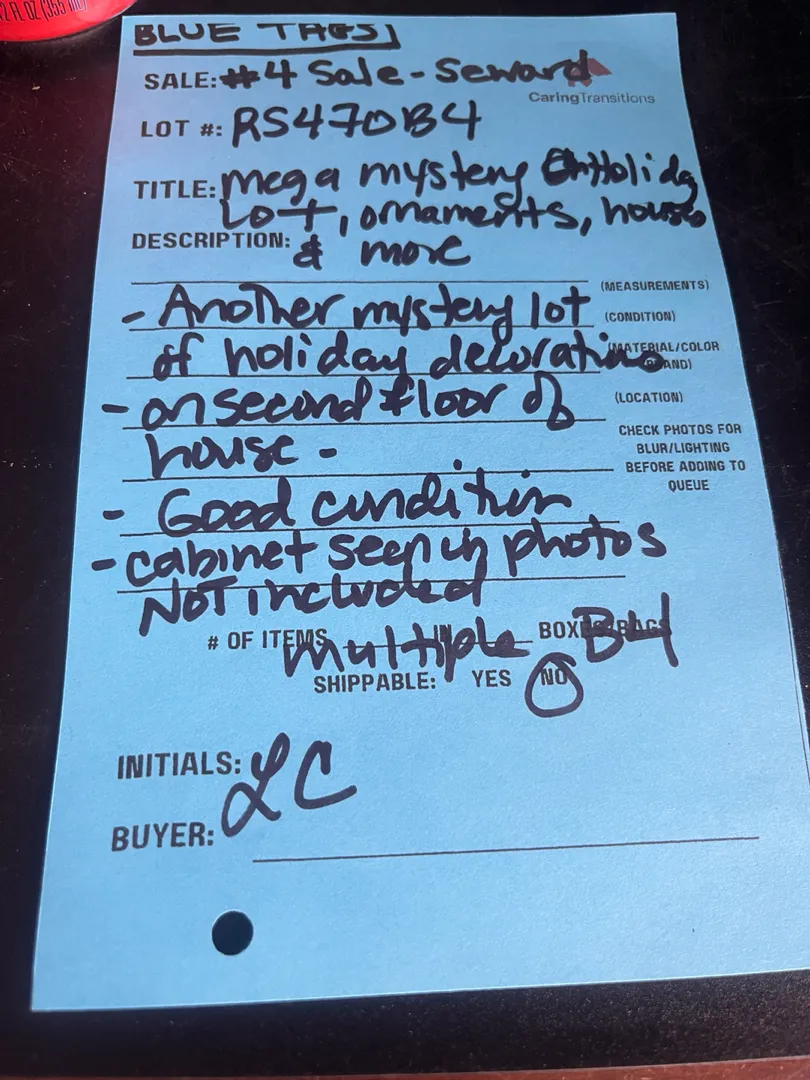 2 FL OZ (355 mL)
BLUE TAGS
SALE: #4 Sale - Seward
CaringTransitions
LOT #: RS470B4
TITLE: Mega mystery Holiday
Lot, ornaments, houses
DESCRIPTION: & more
(MEASUREMENTS)
- Another mystery lot
(CONDITION)
of holiday decorations
(MATERIAL/COLOR
BRAND)
- on second floor of
(LOCATION)
house -
CHECK PHOTOS FOR
BLUR/LIGHTING
BEFORE ADDING TO
QUEUE
- Good condition
- cabinet seen in photos
NOT included
# OF ITEMS Multiple IN BOXES/BAGS B4
SHIPPABLE: YES NO
INITIALS: LC
BUYER: